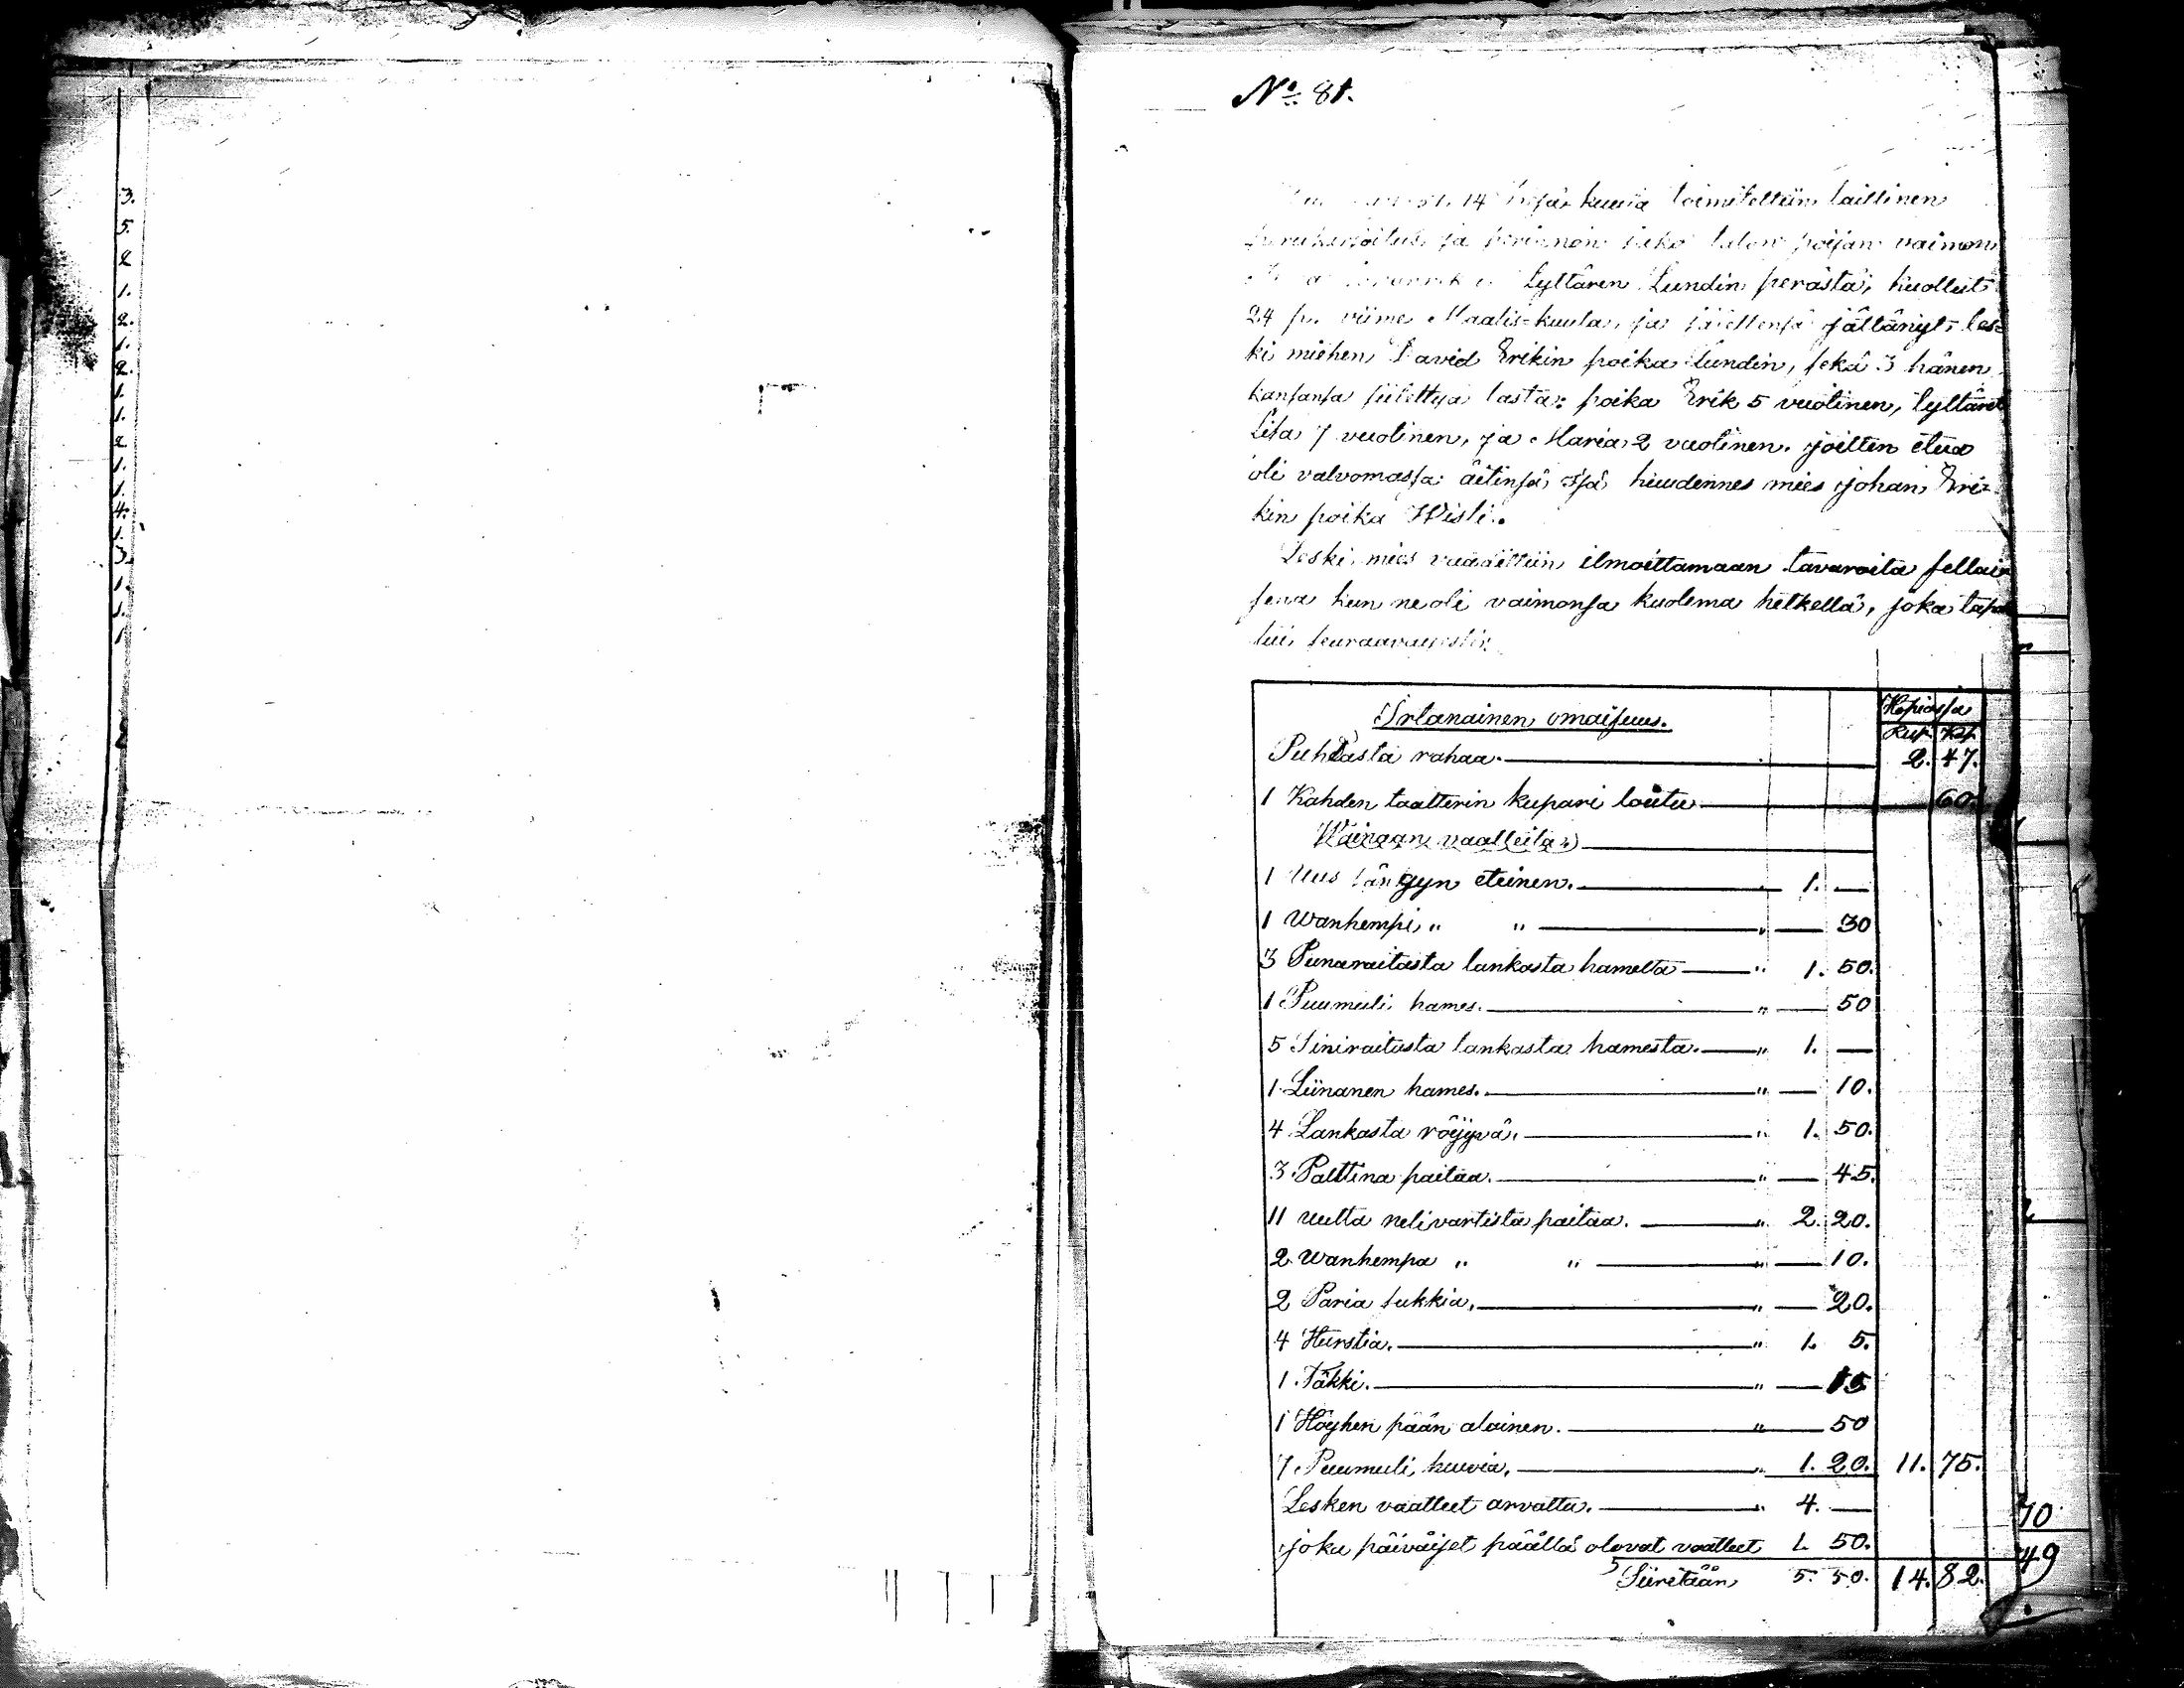 No 81.
14 kuuta toimitettiin laillinen
ja talon poijan vaimon
tyttären Lundin perästä, kuollut
24 p. viime Maalis-kuuta, ja jälkensä jättänyt les-
ki miehen David Erikin poika Lundin, sekä 3 hänen
kansansa siitettyä lasta: poika Erik 5 vuotinen, tyttäret
Lisa 7 vuotinen, ja Maria 2 vuotinen. joitten etua
oli valvomassa äitinsä isä huudennes mies Johan Eri-
kin poika Wisti.
Leski mies vaadittiin ilmoittamaan tavaroita sellai
sena kun ne oli vaimonsa kuolema hetkellä, joka tapah
tui seuraavaisesti:
Irtanainen omaisuus.
Hopiassa
Rup. Kop.
Puhdasta rahaa. 2. 47.
1 Kahden taatterin kupari loutu 60.
Wainaan vaatteita
1 Uus längyn eteinen. 1. —
1 Wanhempi " " " — 30
3 Punaraitasta lankasta hametta " 1. 50.
1 Puumuli hames. " — 50
5 Siniraitasta lankasta hamesta. " 1. —
1 Liinanen hames. " — 10.
4 Lankasta röijyä. " 1. 50.
3 Palttina paitaa. " — 45.
11 uutta nelivartista paitaa. " 2. 20.
2 Wanhempa " " " — 10.
2 Paria sukkia. " — 20.
4 Hurstia. " 1. 5.
1 Täkki. " — 15
1 Höyhen pään alainen. " — 50
7 Puumuli huivia. " 1. 20. 11. 75.
Lesken vaatteet arvattu. " 4. —
joku päiväiset päällä olevat vaatteet 1. 50.
Siiretään 5. 50. 14. 82.
3.
5.
2
1.
2.
1.
2.
1.
1.
2
1.
1.
4.
1.
3.
1.
1.
1
70
49